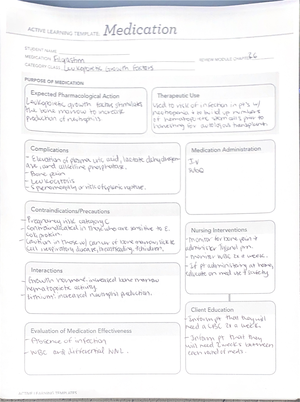 ACTIVE LEARNING TEMPLATE: Medication
STUDENT NAME
MEDICATION Filgrastim
REVIEW MODULE CHAPTER
CATEGORY CLASS Leukopoietic Growth Factors
PURPOSE OF MEDICATION
Expected Pharmacological Action
Leukopoietic growth factors stimulate
the bone marrow to increase
production of neutrophils
Therapeutic Use
Used to risk of infection in pt's w/
neutropenia + to build up numbers
of hematopoietic stem cells prior to
harvesting for autologous transplant.
Complications
- Elevation of plasma uric acid, lactate dehydrogen
ase, and alkaline phosphatase.
- Bone pain
- Leukocytosis
- Splenomegaly or risk of splenic rupture.
Medication Administration
IV
SubQ
Contraindications/Precautions
- Pregnancy risk category C
- Contraindicated in those who are sensitive to E.
Coli protein.
- Caution in those w/ cancer of bone marrow,
respiratory disease, breastfeeding, children.
Nursing Interventions
- monitor for bone pain +
administer
- monitor CBC 2x a week.
- If pt administering at home,
educate on
Interactions
- Growth
hematopoietic activity.
- Lithium: increased neutrophil production.
Client Education
- Instruct pt that they will
need a CBC 2x a week.
- Instruct pt that they
will need 2 weeks between
each round of meds.
Evaluation of Medication Effectiveness
- Absence of infection
- WBC and differential WNL.
ACTIVE LEARNING TEMPLATES